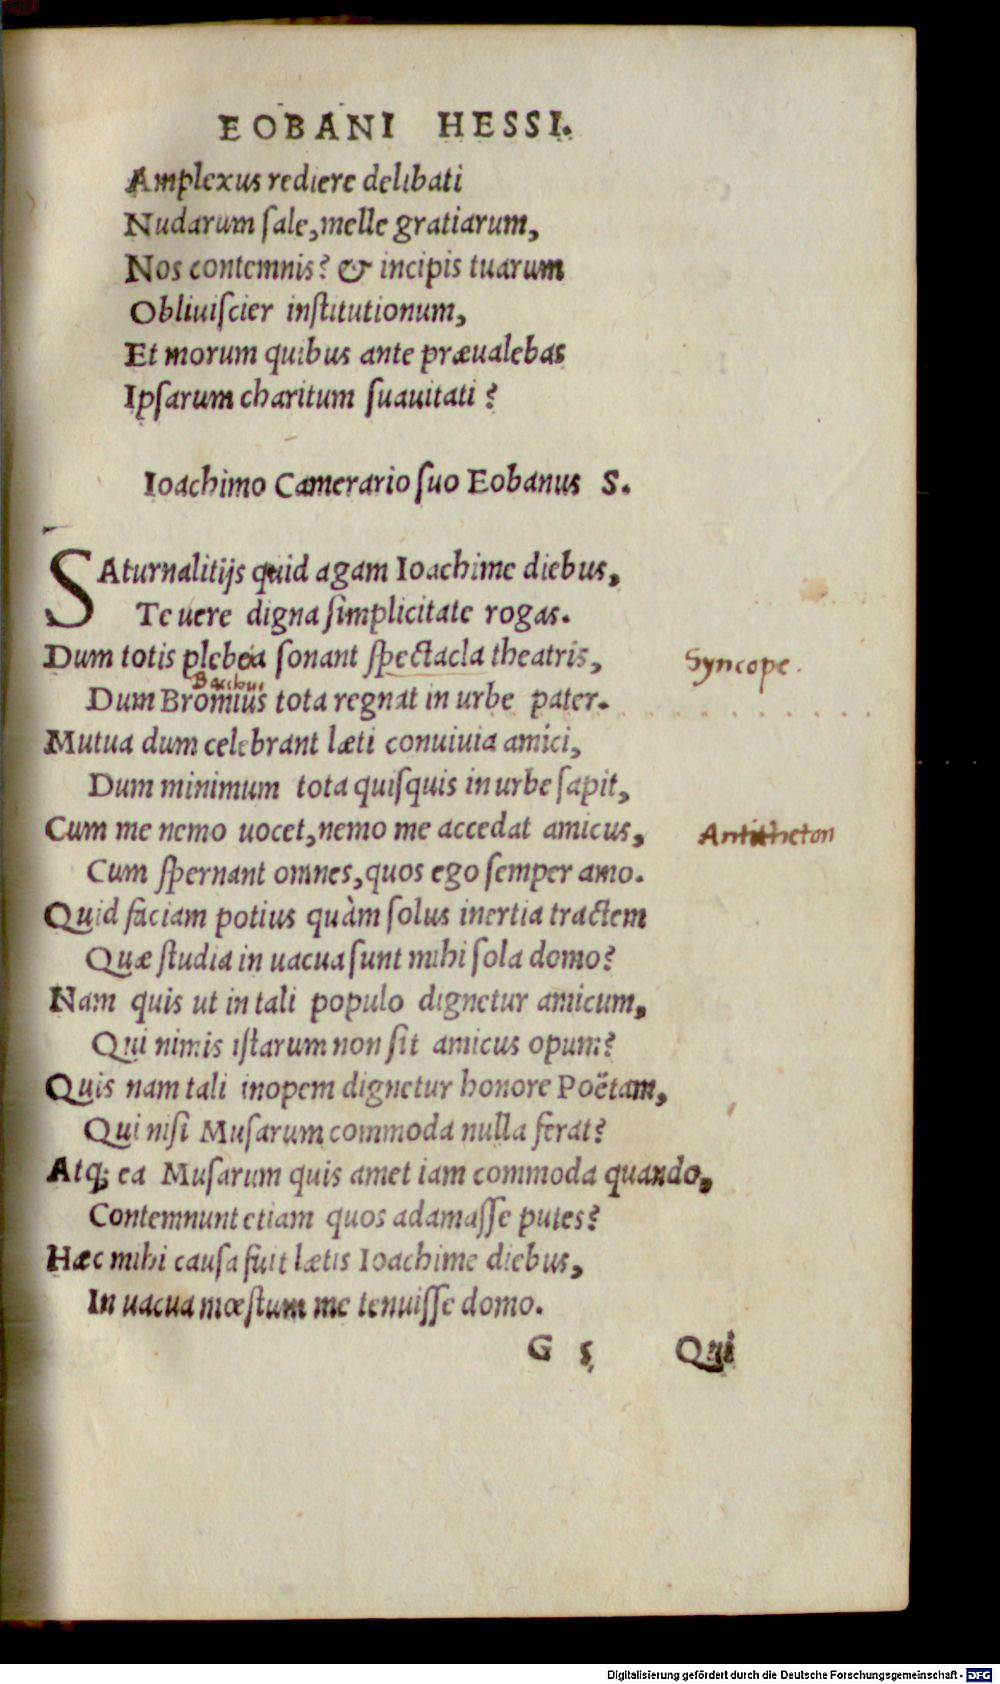 EOBANI HESSI.
Amplexus rediere delibati
Nudarum sale, melle gratiarum,
Nos contemnis? & incipis tuarum
Obliuiscier institutionum,
Et morum quibus ante præualebas
Ipsarum charitum suauitati?
Ioachimo Camerario suo Eobanus S.
SAturnalitijs quid agam Ioachime diebus,
Te uere digna simplicitate rogas.
Dum totis plebeia sonant spectacla theatris,
Syncope.
Bacchus
Dum Bromius tota regnat in urbe pater.
Mutua dum celebrant læti conuiuia amici,
Dum minimum tota quisquis in urbe sapit,
Cum me nemo uocet, nemo me accedat amicus,
Antitheton
Cum spernant omnes, quos ego semper amo.
Quid faciam potius quàm solus inertia tractem
Quæ studia in uacua sunt mihi sola domo?
Nam quis ut in tali populo dignetur amicum,
Qui nimis istarum non sit amicus opum?
Quis nam tali inopem dignetur honore Poëtam,
Qui nisi Musarum commoda nulla ferat?
Atq; ea Musarum quis amet iam commoda quando,
Contemnunt etiam quos adamasse putes?
Hæc mihi causa fuit lætis Ioachime diebus,
In uacua mœstum me tenuisse domo.
G 5 Qui
Digitalisierung gefördert durch die Deutsche Forschungsgemeinschaft - DFG